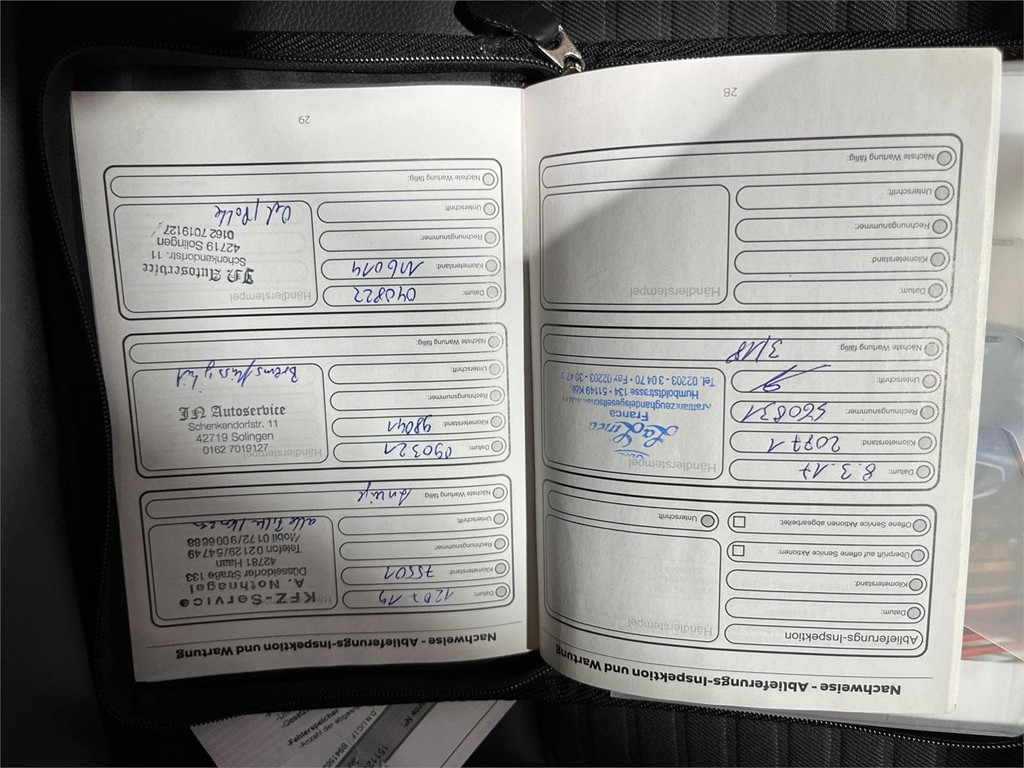 Nachweise - Ablieferungs-Inspektion und Wartung
Ablieferungs-Inspektion
Datum:
Kilometerstand:
Überprüft auf offene Service Aktionen:
Offene Service Aktionen abgearbeitet:
Händlerstempel
Unterschrift:
Datum: 8.3.17
Kilometerstand: 20871
Rechnungsnummer: 560831
Unterschrift:
Nächste Wartung fällig: 3/18
Händlerstempel
La Linea
Franca
Kraftfahrzeughandelsgesellschaft
Humboldtstrasse 134 • 51149 Köln
Tel. 02203 - 3 04 70 • Fax 02203 - 30 47
Datum:
Kilometerstand:
Rechnungsnummer:
Unterschrift:
Nächste Wartung fällig:
Händlerstempel
28
Nachweise - Ablieferungs-Inspektion und Wartung
Datum: 120719
Kilometerstand: 75501
Rechnungsnummer:
Unterschrift:
Nächste Wartung fällig: Anzeige
KFZ-Service
A. Nothnagel
Düsseldorfer Straße 133
42781 Haan
Telefon 02129/54749
Mobil 0172/9006688
alle Filter
Datum: 090321
Kilometerstand: 98041
Rechnungsnummer:
Unterschrift:
Nächste Wartung fällig:
Händlerstempel
JN Autoservice
Schenkendorfstr. 11
42719 Solingen
0162 7019127
Bremsflüssigkeit
Datum: 040822
Kilometerstand: 116014
Rechnungsnummer:
Unterschrift:
Nächste Wartung fällig:
Händlerstempel
JN Autoservice
Schenkendorfstr. 11
42719 Solingen
0162 7019127
Oel/Polle
29
-Fehlerspeicher